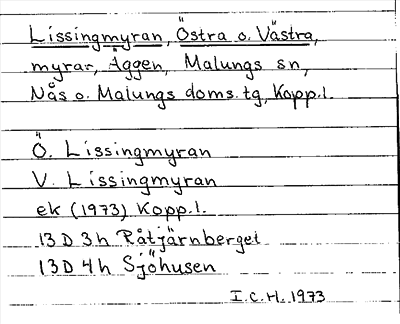 Lissingmyran, Östra o. Västra,
myrar, Äggen, Malungs sn,
Nås o. Malungs doms. tg, Kopp.l.
Ö. Lissingmyran
V. Lissingmyran
ek (1973) Kopp.l.
13 D 3h Råtjärnberget
13 D 4h Sjöhusen
I.C.H. 1973